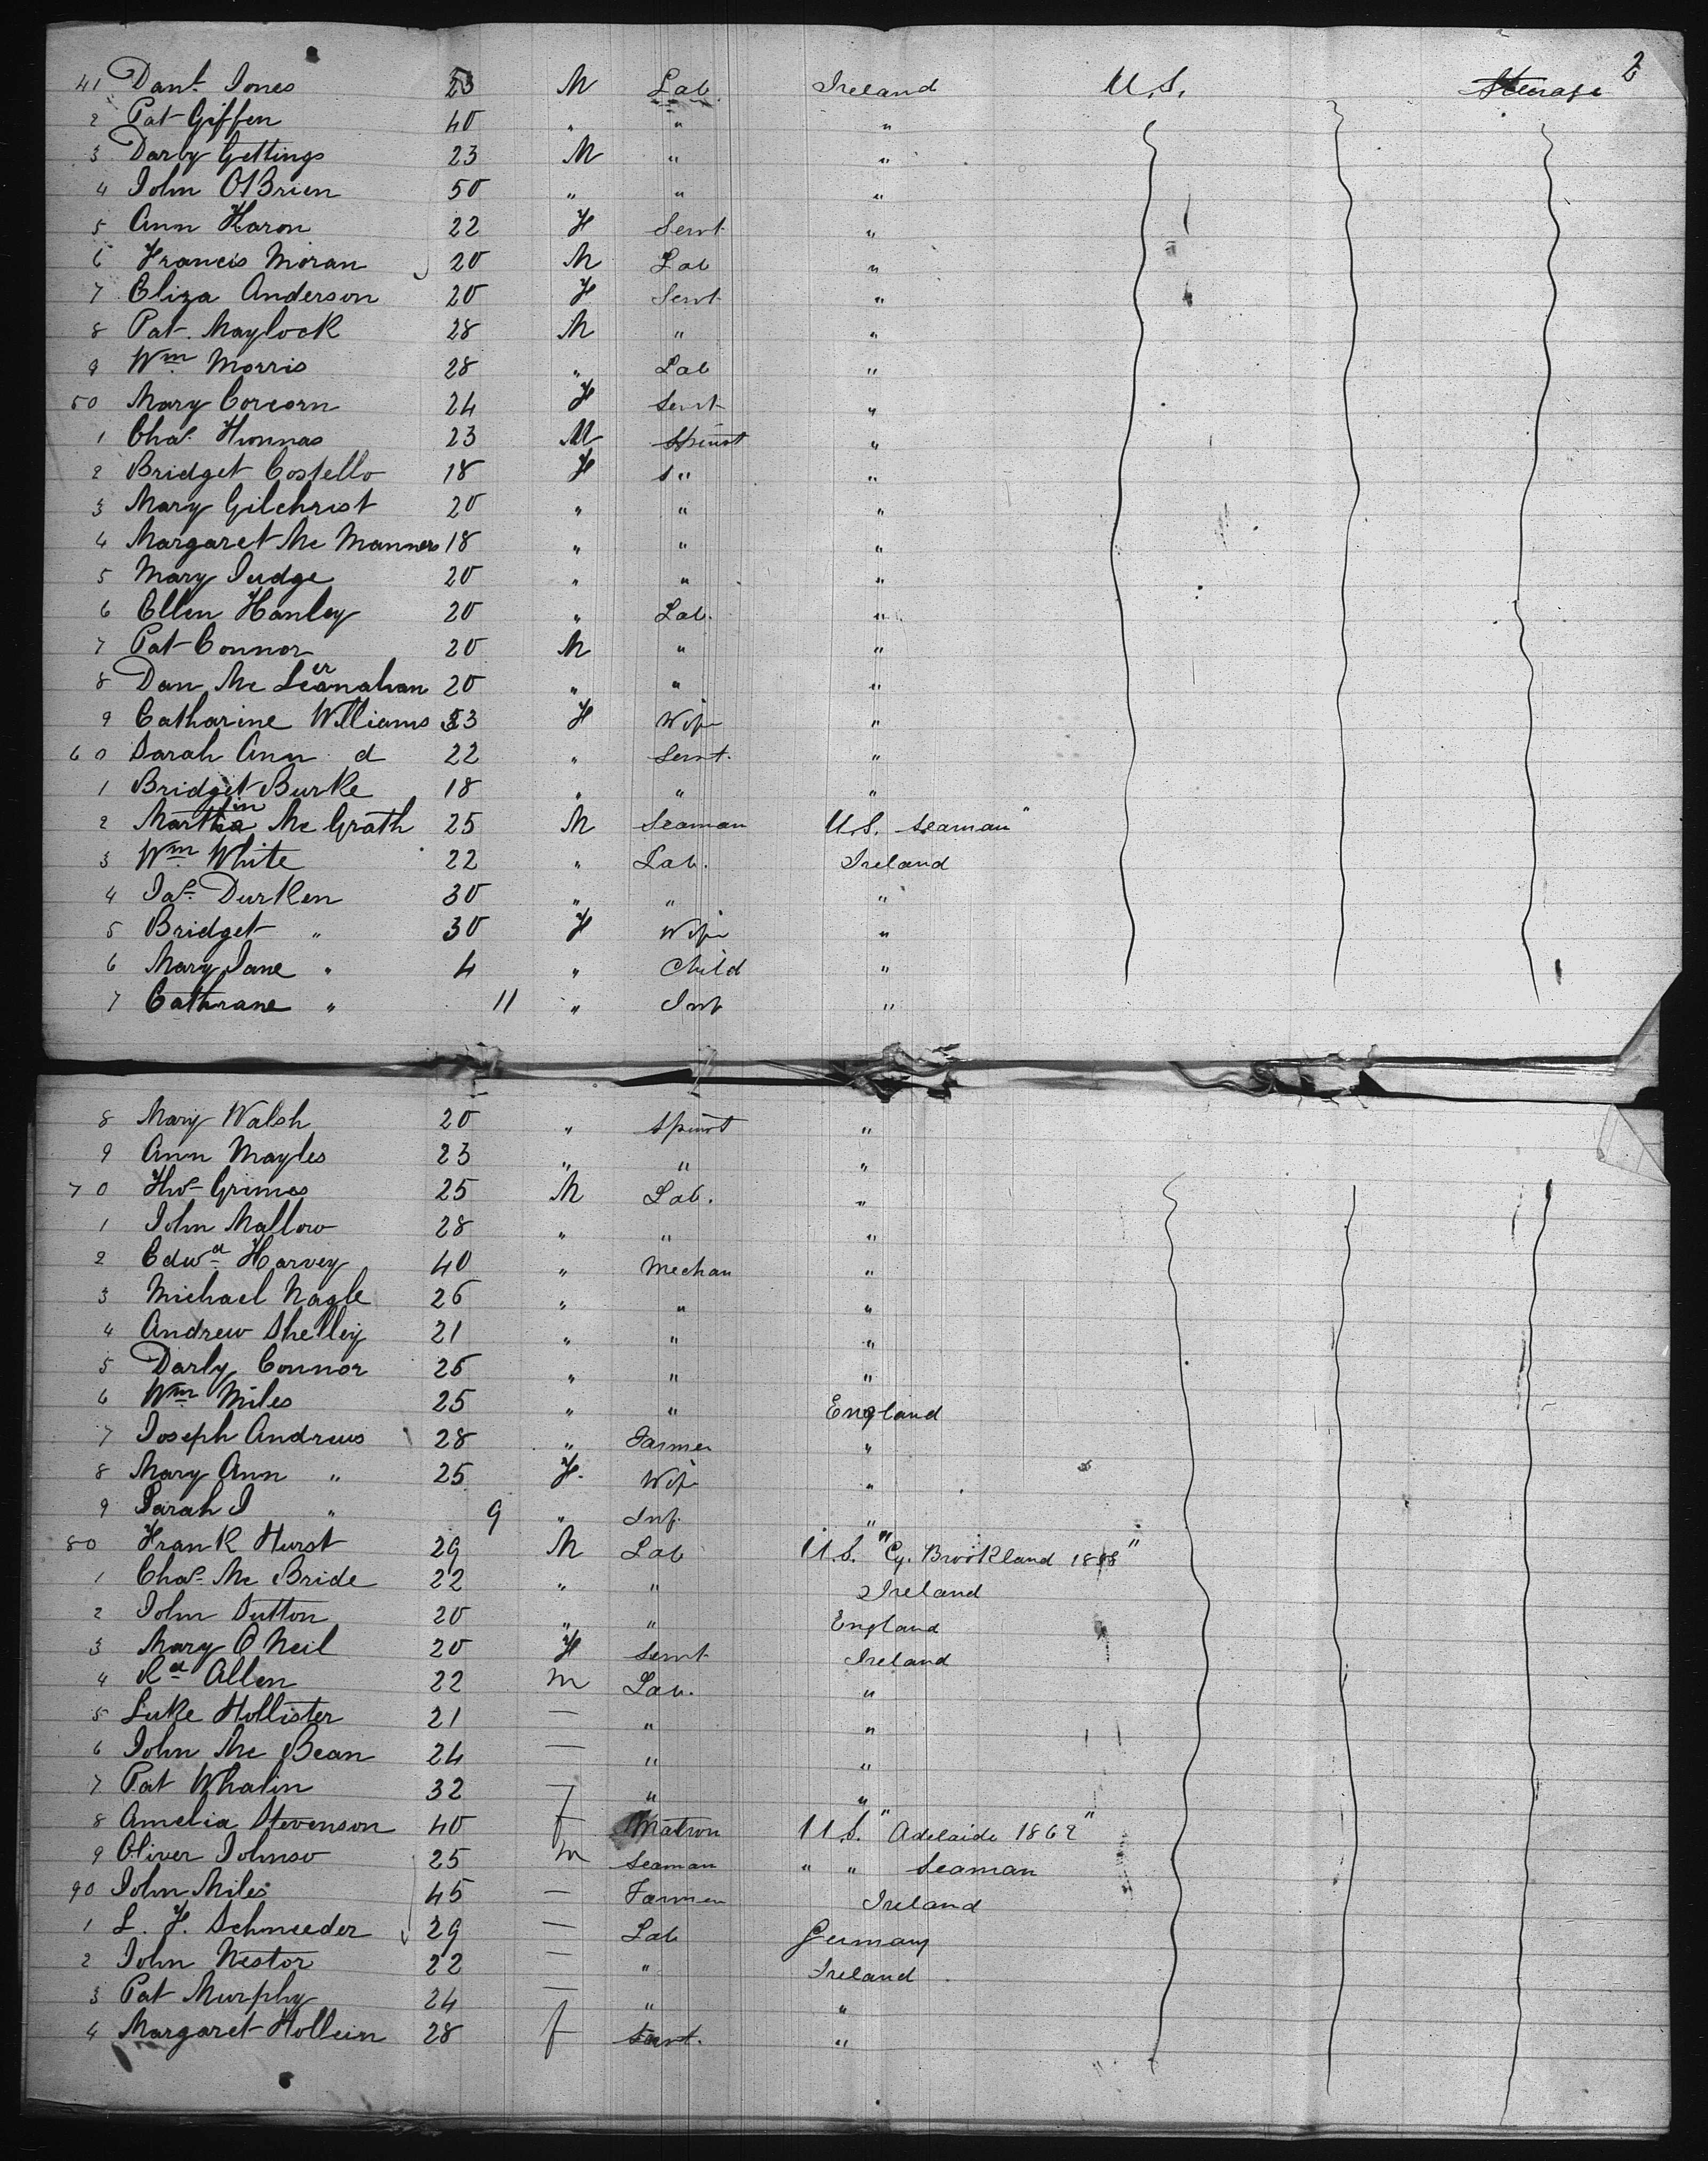 2
41 Danl. Jones 23 M Lab Ireland U.S. Steerage
2 Pat Giffen 40 " " "
3 Darby Gettings 23 M " "
4 John O'Brien 50 " " "
5 Ann Haron 22 F Servt "
6 Francis Moran 20 M Lab "
7 Eliza Anderson 20 F Servt "
8 Pat. Maylock 28 M " "
9 Wm. Morris 28 " Lab "
50 Mary Corcorn 24 F Servt "
1 Chas. 23 M Spinst "
2 Bridget Costello 18 F " "
3 Mary Gilchrist 20 " " "
4 Margaret Mc Manners 18 " " "
5 Mary Judge 20 " " "
6 Ellen Hanley 20 " Lab. "
7 Pat Connor 20 M " "
8 Dan Mc 20 " " "
9 Catharine Williams F Wife "
60 Sarah Ann d 22 " Servt. "
1 Bridget Burke 18 " " "
2 Martin Mc Grath 25 M Seaman U.S. Seaman"
3 Wm. White 22 " Lab. Ireland
4 Jas. Durken 30 " " "
5 Bridget " 30 F Wife "
6 Mary Jane " 4 " Child "
7 Cathrane " 11 " Inf "
8 Mary Walsh 20 " Spinst "
9 Ann Mayles 23 " " "
70 Thos. Grimes 25 M Lab. "
1 John Mallow 28 " " "
2 Edwd. Harvey 40 " Mechan "
3 Michael Nagle 26 " " "
4 Andrew Shelley 21 " " "
5 Darby Connor 26 " " "
6 Wm. Miles 25 " " England
7 Joseph Andrews 28 " Farmer "
8 Mary Ann " 25 F. Wife "
9 Sarah J " 9 " Inf. "
80 Frank Hurst 29 M Lab U.S. "Cy. Brookland "
1 Chas. Mc Bride 22 " " Ireland
2 John Sutton 20 " " England
3 Mary O Neil 20 F Servt Ireland
4 Rd. Allen 22 m Lab. "
5 Luke Hollister 21 — " "
6 John Mc Bean 24 — " "
7 Pat Whalin 32 — " "
8 Amelia Stevenson 40 f Matron U.S. "Adelaide 1869"
9 Oliver Johnso 25 m Seaman " " Seaman
90 John Miles 45 — Farmer Ireland
1 L. F. Schneeder 29 — Lab Germany
2 John Nestor 22 — " Ireland
3 Pat Murphy 24 — " "
4 Margaret Hollein 28 f Servt. "